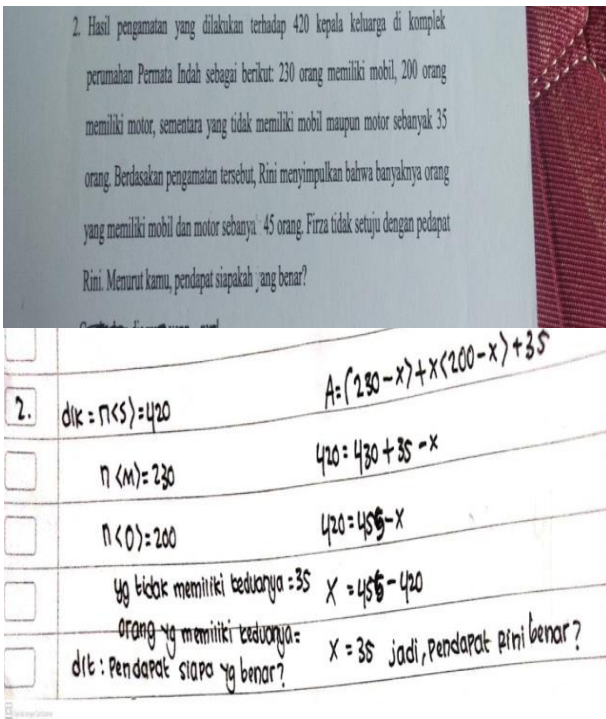 2. Hasil pengamatan yang dilakukan terhadap 420 kepala keluarga di komplek
perumahan Permata Indah sebagai berikut: 230 orang memiliki mobil, 200 orang
memiliki motor, sementara yang tidak memiliki mobil maupun motor sebanyak 35
orang. Berdasakan pengamatan tersebut, Rini menyimpulkan bahwa banyaknya orang
yang memiliki mobil dan motor sebanya 45 orang. Firza tidak setuju dengan pedapat
Rini. Menurut kamu, pendapat siapakah yang benar?
2. dik = n<S>=420
n<M>=230
n<O>=200
yg tidak memiliki keduanya =35
orang yg memiliki keduanya=
dit : pendapat siapa yg benar?
A=(230-x)+x<200-x>+35
420=430+35-x
420=455-x
x=455-420
x=35 jadi, pendapat Rini benar?